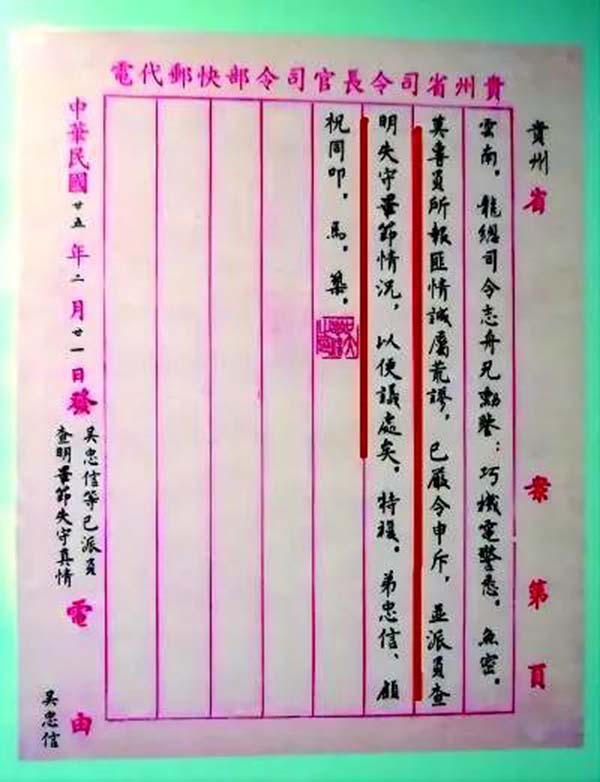 貴州省司令長官司令部快郵代電
貴州省 案第 頁
雲南。龍總司令志舟兄勳鑒:巧機電警悉。密。
莫專員所報匪情誠屬荒謬,已嚴令申斥,並派員查
明失守畢節情況,以便議處矣。特複。弟忠信、顧
祝同叩。馬。築。
中華民國廿五年二月廿一日發電由
吳忠信等已派員
查明畢節失守真情
吳忠信